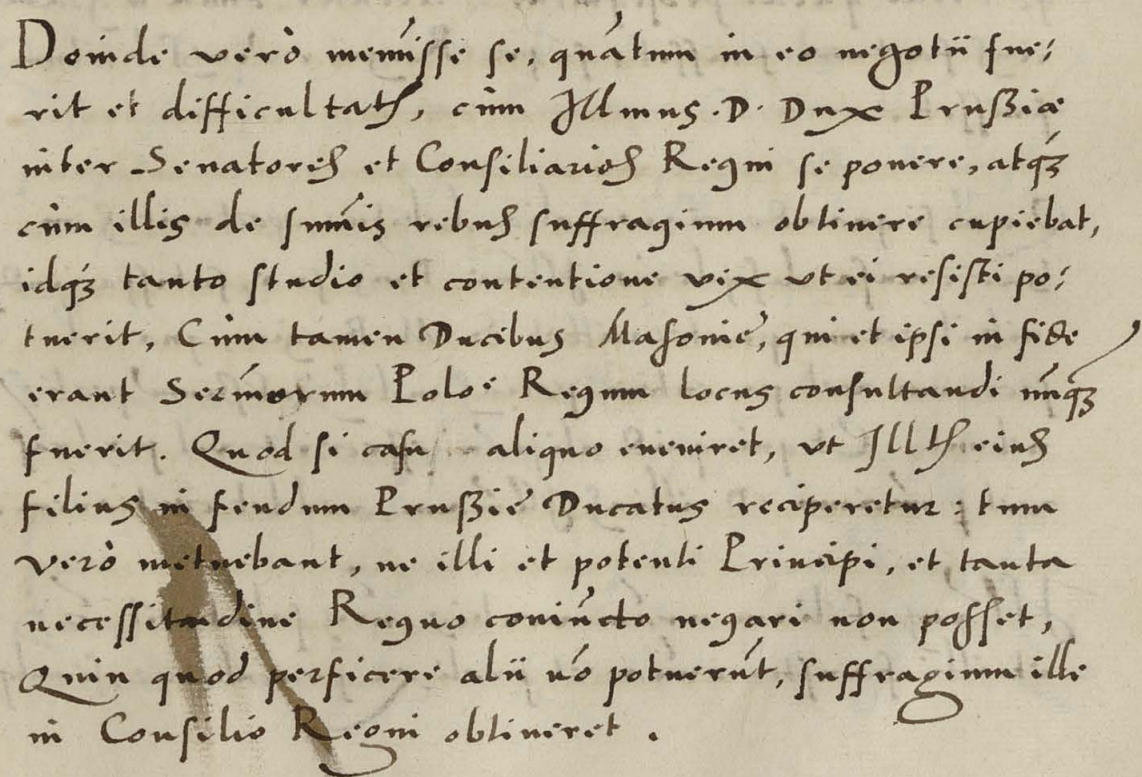 Deinde verò memīsse se, quātum in eo negotii fue/
rit et difficultatꝭ, cùm Illmus. D. Dux Prussiæ
inter Senatores et Consiliarios Regni se ponere, atqꝫ
cùm illis de sum̄is rebus suffragium obtinere cupiebat,
idqꝫ tanto studio et contentione vix vt ei resisti po/
tuerit, Cùm tamen Ducibus Masovię, qui et ipsi in fide
erant Serm̄orum Polo͡e Regum locus consultandi nūqꝫ
fuerit. Quod si casu aliquo eveniret, vt Illtꝭ eius
filius in feudum Prussię Ducatus reciperetur: tum
verò metuebant, ne illi et potenti Principi, et tanta
necessitudine Regno coniūcto negari non posset,
Quin quod perficere alii nō potuerūt, suffragium ille
in Consilio Regni obtineret.